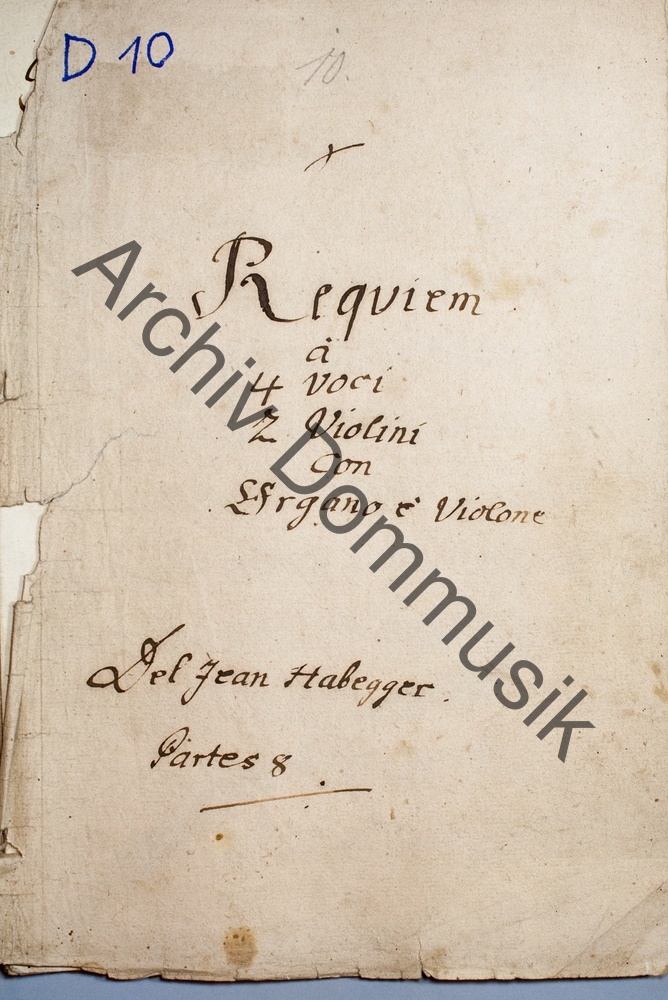 D 10
10.
Requiem
à
4 voci
2 Violini
Con
Organo è Violone
Del Jean Habegger.
Partes 8
Archiv Dommusik